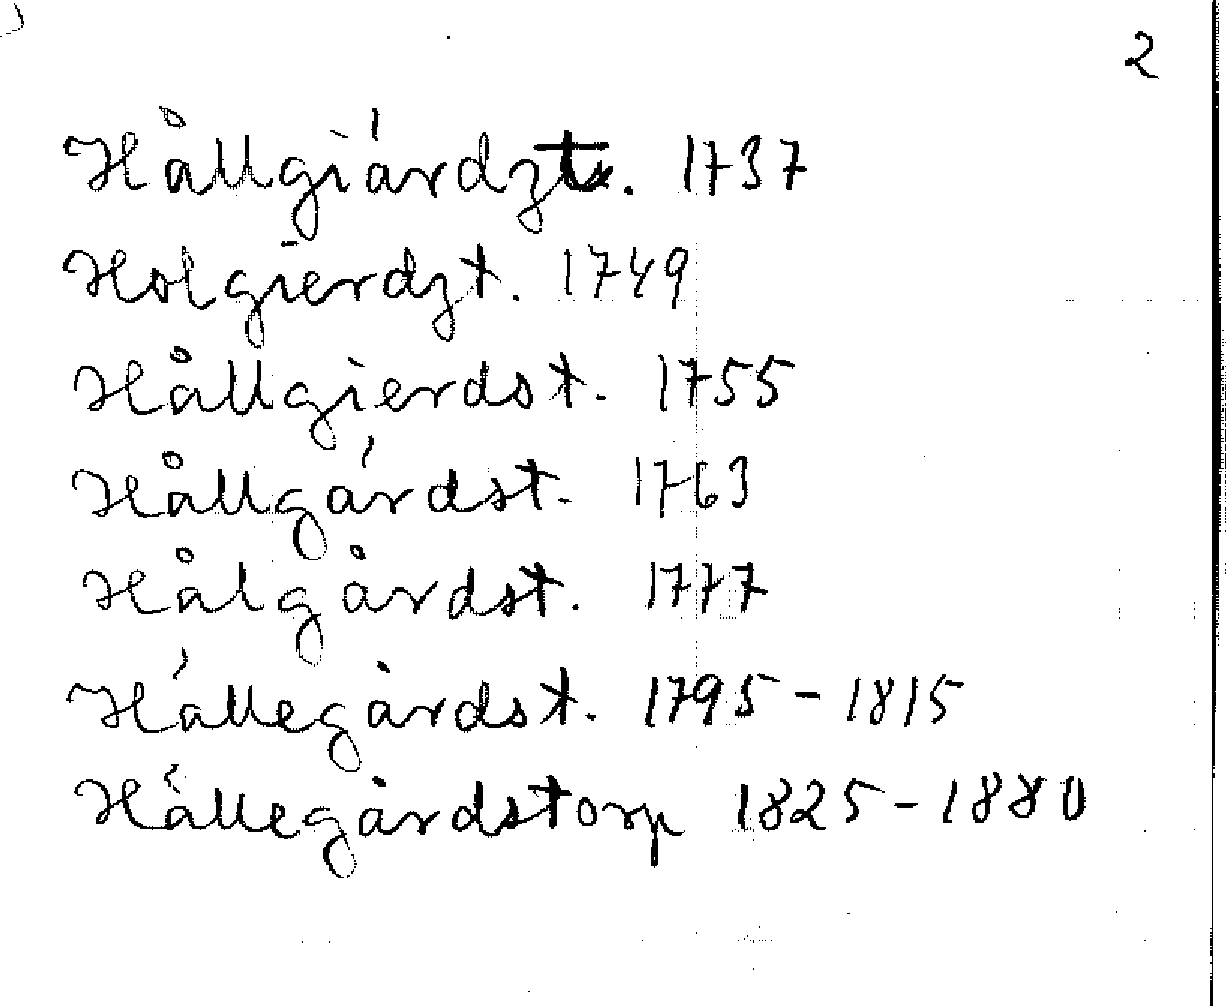 2
Hållgiärdzt. 1737
Holgierdzt. 1749
Hållgierdst. 1755
Hållgärdst. 1763
Hålgårdst. 1777
Hällegårdst. 1795-1815
Hällegårdstorp 1825-1880